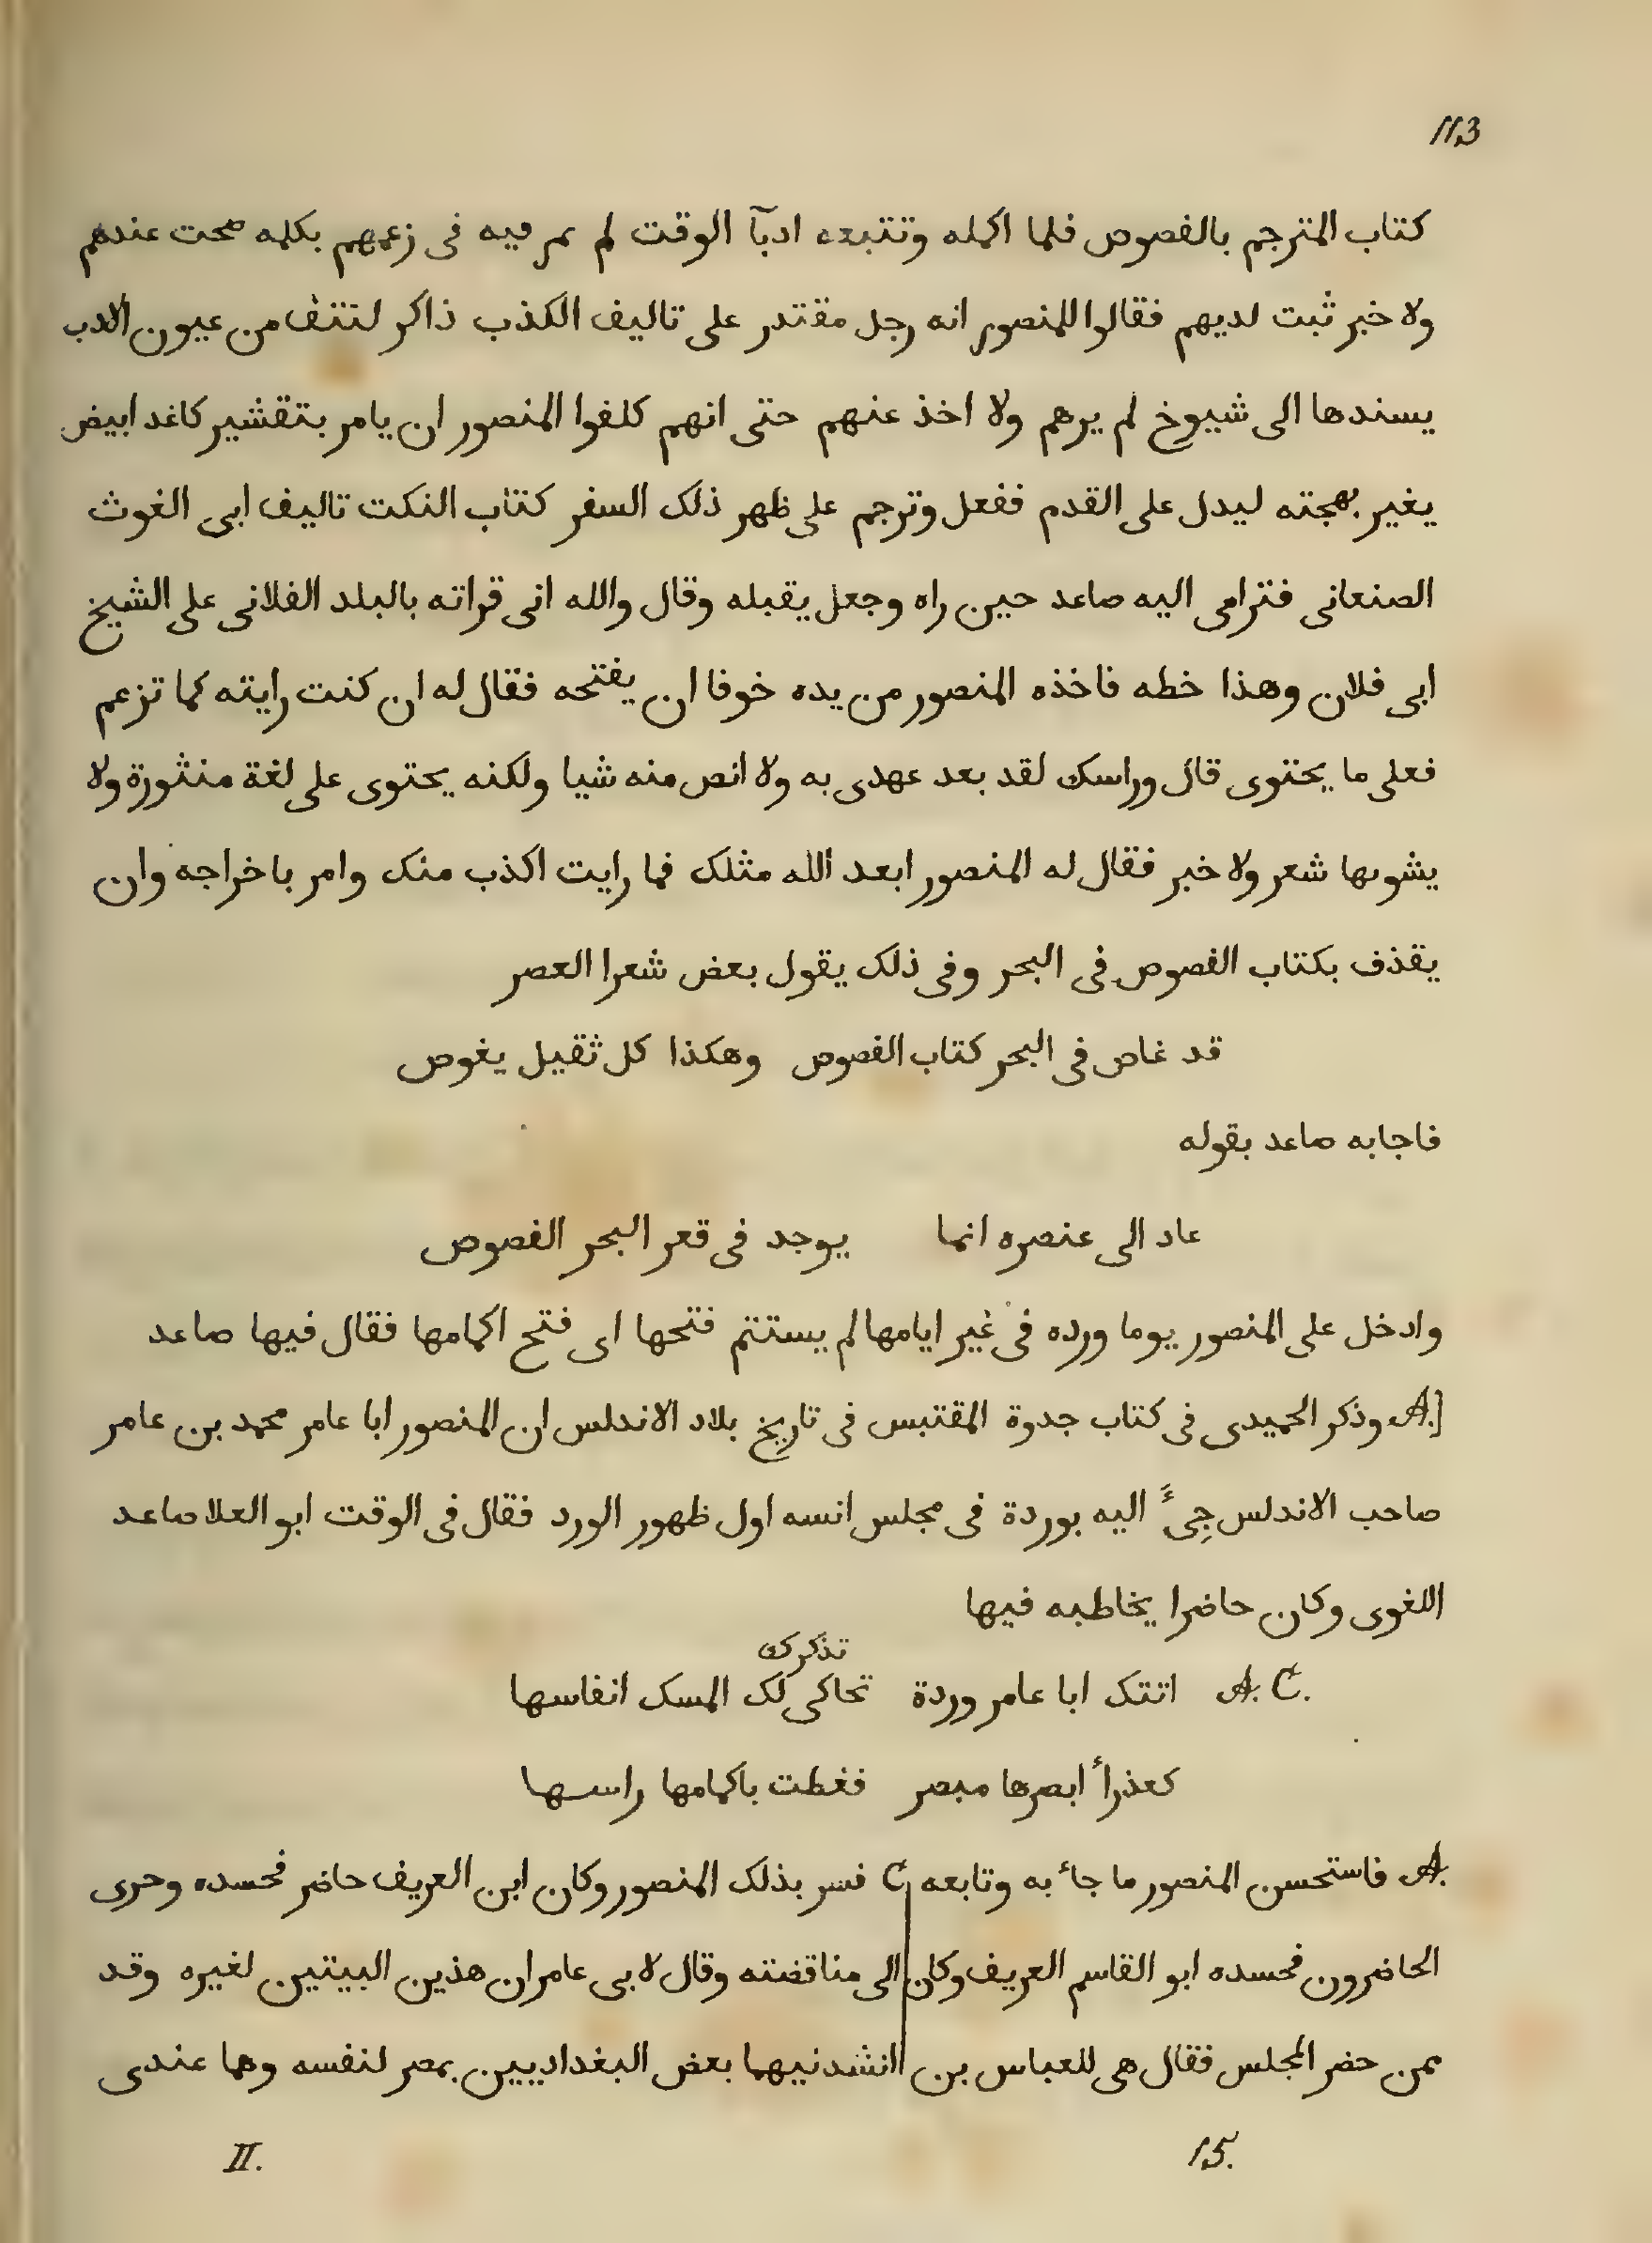 113
كتاب المترجم بالفصوص فلما اكمله وتتبعه ادبآ الوقت لم يمر فيه فى زعمهم بكلمه صحت عندهم
ولا خبر ثبت لديهم فقالوا للمنصور انه رجل مقتدر على تاليف الكذب ذاكر لنتف من عيون الادب
يسندها الى شيوخ لم يرهم ولا اخذ عنهم حتى انهم كلفوا المنصور ان يامر بتقشير كاغد ابيض
يغير بهجته ليدل على القدم ففعل وترجم على ظهر ذلك السفر كتاب النكت تاليف ابى الغوث
الصنعانى فترامى اليه صاعد حين راه وجعل يقبله وقال والله انى قراته بالبلد الفلانى على الشيخ
ابى فلان وهذا خطه فاخذه المنصور من يده خوفا ان يفتحه فقال له ان كنت رايته كما تزعم
فعلى ما يحتوى قال وراسك لقد بعد عهدى به ولا انص منه شيا ولكنه يحتوى على لغة منثورة ولا
يشوبها شعر ولا خبر فقال له المنصور ابعد الله مثلك فما رايت اكذب منك وامر باخراجه وان
يقذف بكتاب الفصوص فى البحر وفى ذلك يقول بعض شعرا العصر
قد غاص فى البحر كتاب الفصوص وهكذا كل ثقيل يغوص
فاجابه صاعد بقوله
عاد الى عنصره انما يوجد فى قعر البحر الفصوص
وادخل على المنصور يوما ورده فى غير ايامها لم يستتم فتحها اى فتح اكمامها فقال فيها صاعد
[A. وذكر الحميدى فى كتاب جدوة المقتبس فى تاريخ بلاد الاندلس ان المنصور ابا عامر محمد بن عامر
صاحب الاندلس جِىءَ اليه بوردة فى مجلس انسه اول ظهور الورد فقال فى الوقت ابو العلا صاعد
اللغوى وكان حاضرا يخاطبه فيها
تذكرك
A. C. اتتك ابا عامر وردة تحاكى لك المسك انفاسها
كعذرأ ابصرها مبصر فغطت باكمامها راسها
A. فاستحسن المنصور ما جاء به وتابعه C فسر بذلك المنصور وكان ابن العريف حاضر فحسده وجرى
الحاضرون فحسده ابو القاسم العريف وكان الى مناقضته وقال لابى عامر ان هذين البيتين لغيره وقد
ممن حضر المجلس فقال هى للعباس بن انشدنيهما بعض البغداديين بمصر لنفسه وهما عندى
15. II.